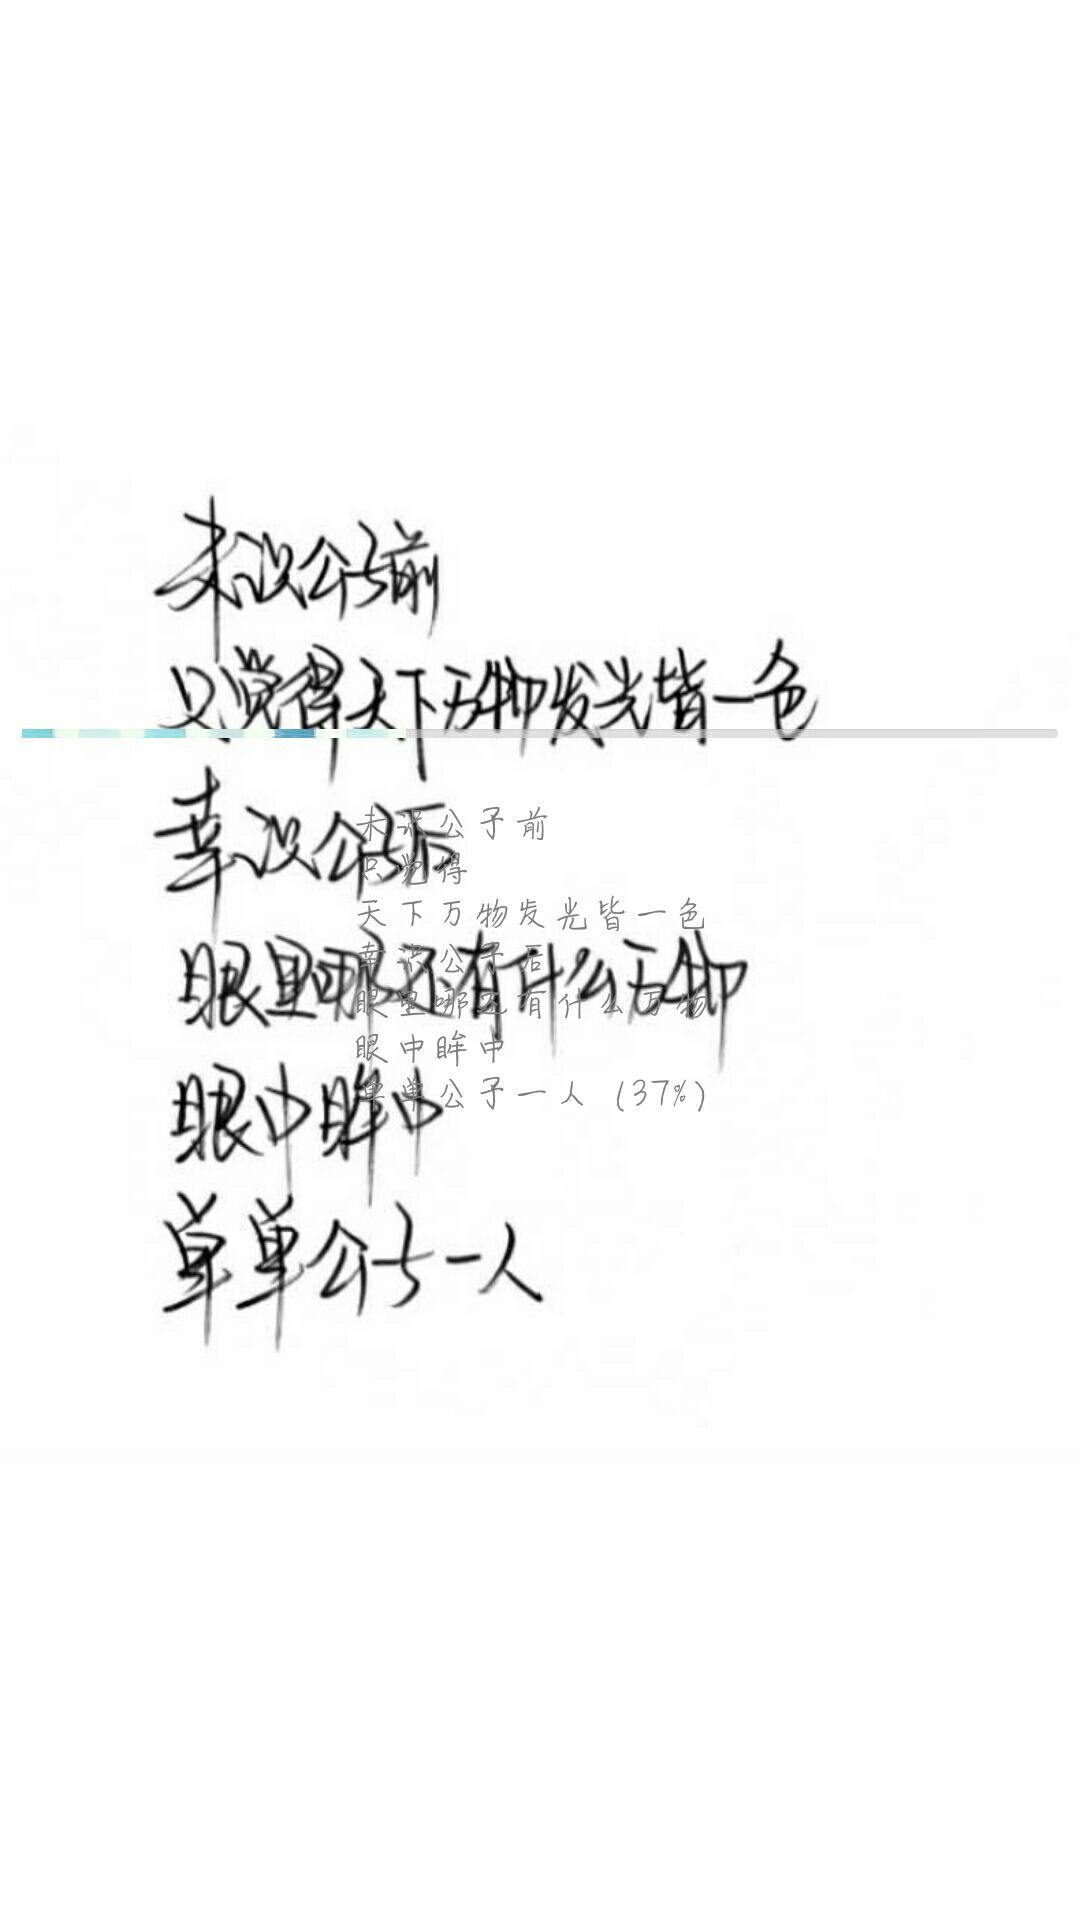 未识公子前
只觉得天下万物发光皆一色
幸识公子后
眼里哪还有什么万物
眼中眸中
单单公子一人
未识公子前
只觉得
天下万物发光皆一色
幸识公子后
眼里哪还有什么万物
眼中眸中
单单公子一人 (37%)